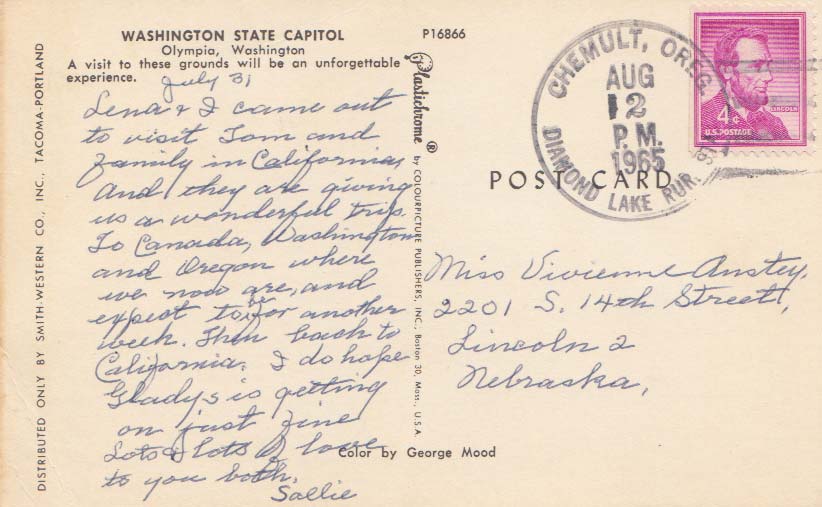 WASHINGTON STATE CAPITOL
Olympia, Washington
A visit to these grounds will be an unforgettable
experience.
P16866
July 31
Lena & I came out
to visit Tom and
family in California,
And they are giving
us a wonderful trip.
To Canada, Washington
and Oregon where
we now are, and
expect to be for another
week. Then back to
California. I do hope
Gladys is getting
on just fine
Lots & lots of love
to you both.
Sallie
DISTRIBUTED ONLY BY SMITH-WESTERN CO., INC., TACOMA-PORTLAND
Plastichrome ® by COLOURPICTURE PUBLISHERS, INC., Boston 30, Mass., U.S.A.
Color by George Mood
POST CARD
CHEMULT, OREG.
AUG
2
P.M.
1965
DIAMOND LAKE RUR.
LINCOLN
4¢
U.S. POSTAGE
Miss Vivienne Anstey,
2201 S. 14th Street,
Lincoln 2
Nebraska,